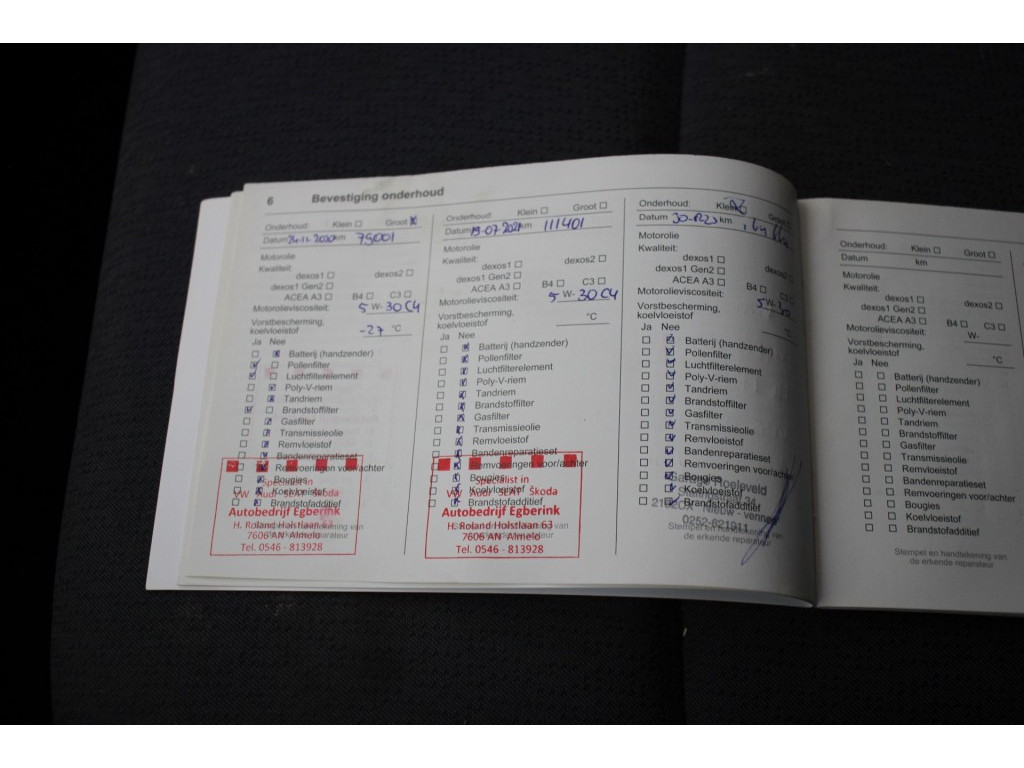 6 Bevestiging onderhoud
Onderhoud: Klein Groot
Datum 24-11-2020 km 79001
Motorolie
Kwaliteit:
dexos1 dexos2
dexos1 Gen2
ACEA A3 B4 C3
Motorolieviscositeit: 5 W- 30 C4
Vorstbescherming,
koelvloeistof -27 °C
Ja Nee
Batterij (handzender)
Pollenfilter
Luchtfilterelement
Poly-V-riem
Tandriem
Brandstoffilter
Gasfilter
Transmissieolie
Remvloeistof
Bandenreparatieset
Remvoeringen voor/achter
Bougies
Koelvloeistof
Brandstofadditief
Specialist in
VW Audi SEAT Škoda
Autobedrijf Egberink
H. Roland Holstlaan 63
7606 AN Almelo
Tel. 0546 - 813928
Onderhoud: Klein Groot
Datum 19-07-2021 km 111401
Motorolie
Kwaliteit:
dexos1 dexos2
dexos1 Gen2
ACEA A3 B4 C3
Motorolieviscositeit: 5 W- 30 C4
Vorstbescherming,
koelvloeistof °C
Ja Nee
Batterij (handzender)
Pollenfilter
Luchtfilterelement
Poly-V-riem
Tandriem
Brandstoffilter
Gasfilter
Transmissieolie
Remvloeistof
Bandenreparatieset
Remvoeringen voor/achter
Bougies
Koelvloeistof
Brandstofadditief
Specialist in
VW Audi SEAT Škoda
Autobedrijf Egberink
H. Roland Holstlaan 63
7606 AN Almelo
Tel. 0546 - 813928
Onderhoud: Klein Groot
Datum km
Motorolie
Kwaliteit:
dexos1 dexos2
dexos1 Gen2
ACEA A3 B4 C3
Motorolieviscositeit: 5 W- 30
Vorstbescherming,
koelvloeistof °C
Ja Nee
Batterij (handzender)
Pollenfilter
Luchtfilterelement
Poly-V-riem
Tandriem
Brandstoffilter
Gasfilter
Transmissieolie
Remvloeistof
Bandenreparatieset
Remvoeringen voor/achter
Bougies
Koelvloeistof
Brandstofadditief
Nieuw - Vennep
0252-621911
Stempel en handtekening van
de erkende reparateur
Onderhoud: Klein Groot
Datum km
Motorolie
Kwaliteit:
dexos1 dexos2
dexos1 Gen2
ACEA A3 B4 C3
Motorolieviscositeit: W-
Vorstbescherming,
koelvloeistof °C
Ja Nee
Batterij (handzender)
Pollenfilter
Luchtfilterelement
Poly-V-riem
Tandriem
Brandstoffilter
Gasfilter
Transmissieolie
Remvloeistof
Bandenreparatieset
Remvoeringen voor/achter
Bougies
Koelvloeistof
Brandstofadditief
Stempel en handtekening van
de erkende reparateur